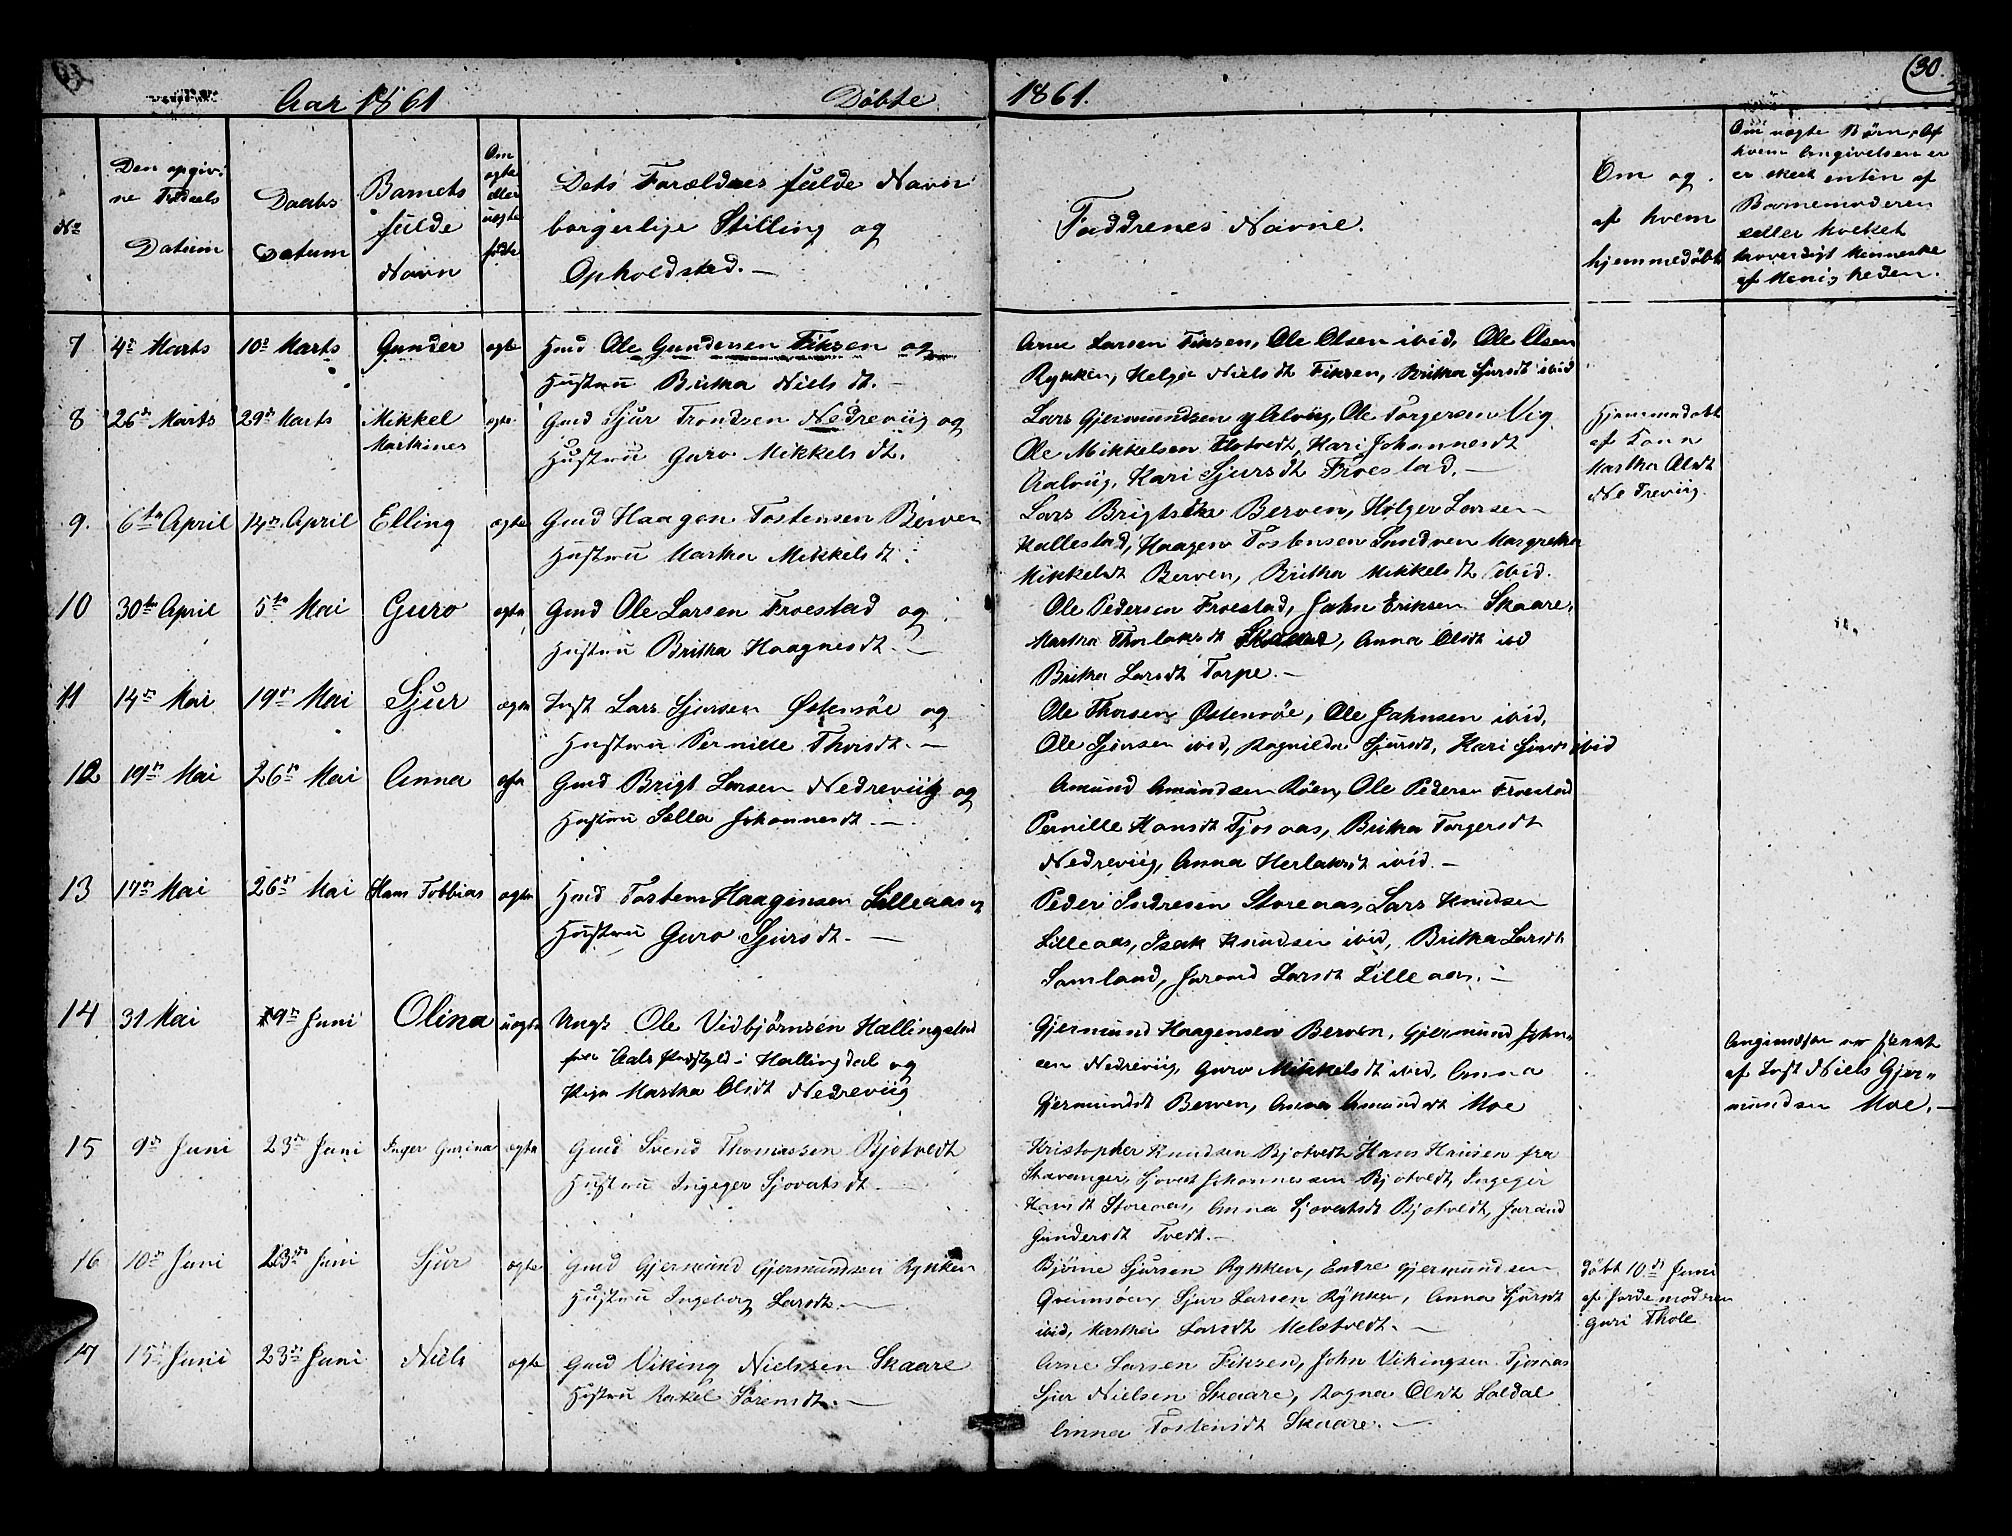 Aar 1861 Døbte 1861. (30.
No
Den opgiv-
ne Fødsels
Datum
Daabs
Datum
Barnets
fulde
Navn
Om
ægte
eller
uægte
født
Dets Forældres fulde Navn
borgerlige Stilling og
Opholdsted. —
Faddrenes Navne.
Om og
af hvem
hjemmedøbt
Om uægte Børn, Af
hvem Angivelsen er
er skeet enten af
Barnemoderen
eller hvilket
troverdigt Menneske
af Menigheden.
7 4de Marts 10de Marts Gunder ægte Hmd Ole Gundersen Fixsen og
Hustru Britha Nielsdt. —
Arne Larsen Fixsen, Ole Olsen ibid, Ole Olsen
Rykken, Helge Nielsdt Fixsen, Britha Sjursdt ibid
8 26de Marts 29de Marts Mikkel
Marthines
ægte Gmd Sjur Trondsen Nedreviig og
Hustru Guro Mikkelsdt.
Lars Gjermundsen Aalvig, Ole Torgersen Vig
Ole Mikkelsen Flotvedt, Kari Johannesdt
Aalviig, Kari Sjursdt Froestad. —
Hjemmedøbt
af
Martha Olsdt
Nedreviig
9. 6te April 14de April Elling ægte Gmd Haagen Tostensen Berven
Hustru Martha Mikkelsdt.
Lars Brigtsen Berven, Holger Larsen
Kallestad, Haagen Tostensen Sandven Margretha
Mikkelsdt Berven, Britha Mikkelsdt ibid.
10 30te April 5te Mai Guro ægte Gmd Ole Larsen Froestad og
Hustru Britha Haagnesdt. —
Ole Pederson Froestad, John Eriksen Skaare,
Martha Thorlaksdt Skaare, Anna Olsdt ibd
Britha Larsdt Torpe. —
11 14de Mai 19de Mai Sjur ægte Inst Lars Sjursen Østensøe og
Hustru Pernille Thorsdt. —
Ole Thorsen Østensøe, Ole Johnsen ibid,
Ole Sjursen ibid, Ragnilda Sjursdt, Kari Sjursdt ibid
12 19de Mai 26de Mai Anna ægte Gmd Brigt Larsen Nedreviig og
Hustru Sella Johannesdt. —
Amund Amundsen Røen, Ole Pedersen Froestad
Pernille Hansdt Tjosaas, Britha Torgersdt
Nedreviig, Anna Herlaksdt ibid. —
13 17de Mai 26de Mai Hans Tobbias ægte Hmd Tosten Haagensen Lilleaas og
Hustru Guro Sjursdt. —
Peder Indresen Storeaas, Lars Knudsen
Lilleaas, Isak Knudsen ibid, Britha Larsdt
Samland, Jorand Larsdt Lilleaas. —
14 31 Mai 9de Juni Olina uægte Ungk Ole Vidbjørnsen Hallingstad
fra Aals Prestgjeld i Hallingdal og
Pige Martha Olsdt Nedreviig
Gjermund Haagensen Berven, Gjermund John-
sen Nedreviig, Guro Mikkelsdt ibid, Anna
Gjermundsdt Berven, Anna Amundsdt Moe
Angivelsen er skeet
af Inst Niels Gjer-
mundsen Moe. —
15 9de Juni 23de Juni Inger Gurina ægte Gmd Svend Thomassen Bjotvedt
Hustru Ingeger Sjovatsdt. —
Kristopher Knudsen Bjotvedt Hans Hansen fra
Stavanger, Sjovat Johannessen Bjotvedt, Ingeger
Hansdt Storeaas, Anna Sjovatsdt Bjotvedt, Jorand
Gundersdt Tvedt. —
16 10de Juni 23de Juni Sjur ægte Gmd Gjermund Gjermundsen Rykken
Hustru Ingeborg Larsdt. —
Bjørne Sjursen Rykken, Endre Gjermundsen
Qvamsøen, Sjur Larsen Rykken, Anna Sjursdt
ibid, Martha Larsdt Melstvedt. —
døbt 10de Juni
af Jordemoderen
Guri Thole
17 15de Juni 23de Juni Niels ægte Gmd Viking Nielssen Skaare
Hustru Rakel Sørensdt. —
Arne Larsen Fixsen, John Vikingsen Tjosaas
Sjur Nielsen Skaare, Ragna Olsdt Laldal
Anna Tostensdt Skaare. —